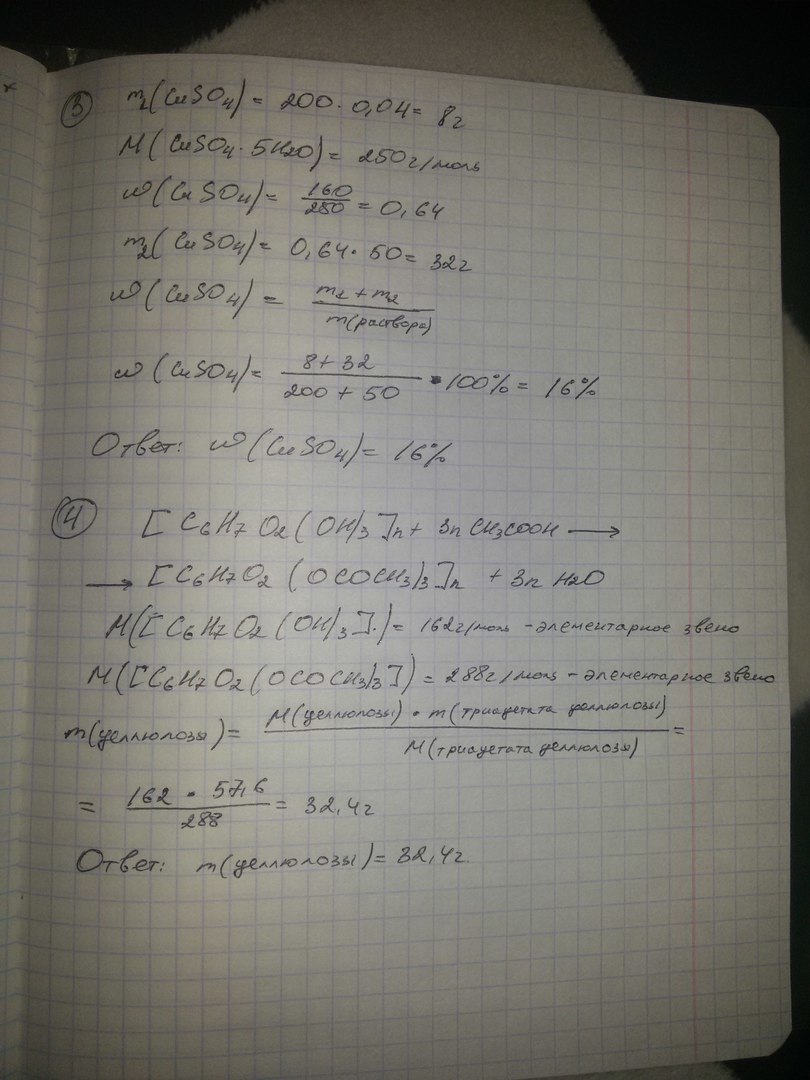 ③ m₁(CuSO₄) = 200 · 0,04 = 8г
M(CuSO₄ · 5H₂O) = 250г/моль
ω(CuSO₄) = 160/250 = 0,64
m₂(CuSO₄) = 0,64 · 50 = 32г
ω(CuSO₄) = m₁ + m₂ / m(раствора)
ω(CuSO₄) = 8 + 32 / 200 + 50 · 100% = 16%
Ответ: ω(CuSO₄) = 16%
④ [C₆H₇O₂(OH)₃]n + 3n CH₃COOH →
→ [C₆H₇O₂(OCOCH₃)₃]n + 3n H₂O
M([C₆H₇O₂(OH)₃]) = 162г/моль - элементарное звено
M([C₆H₇O₂(OCOCH₃)₃]) = 288г/моль - элементарное звено
m(целлюлозы) = M(целлюлозы) · m(триацетата целлюлозы) / M(триацетата целлюлозы) =
= 162 · 57,6 / 288 = 32,4г
Ответ: m(целлюлозы) = 32,4г.